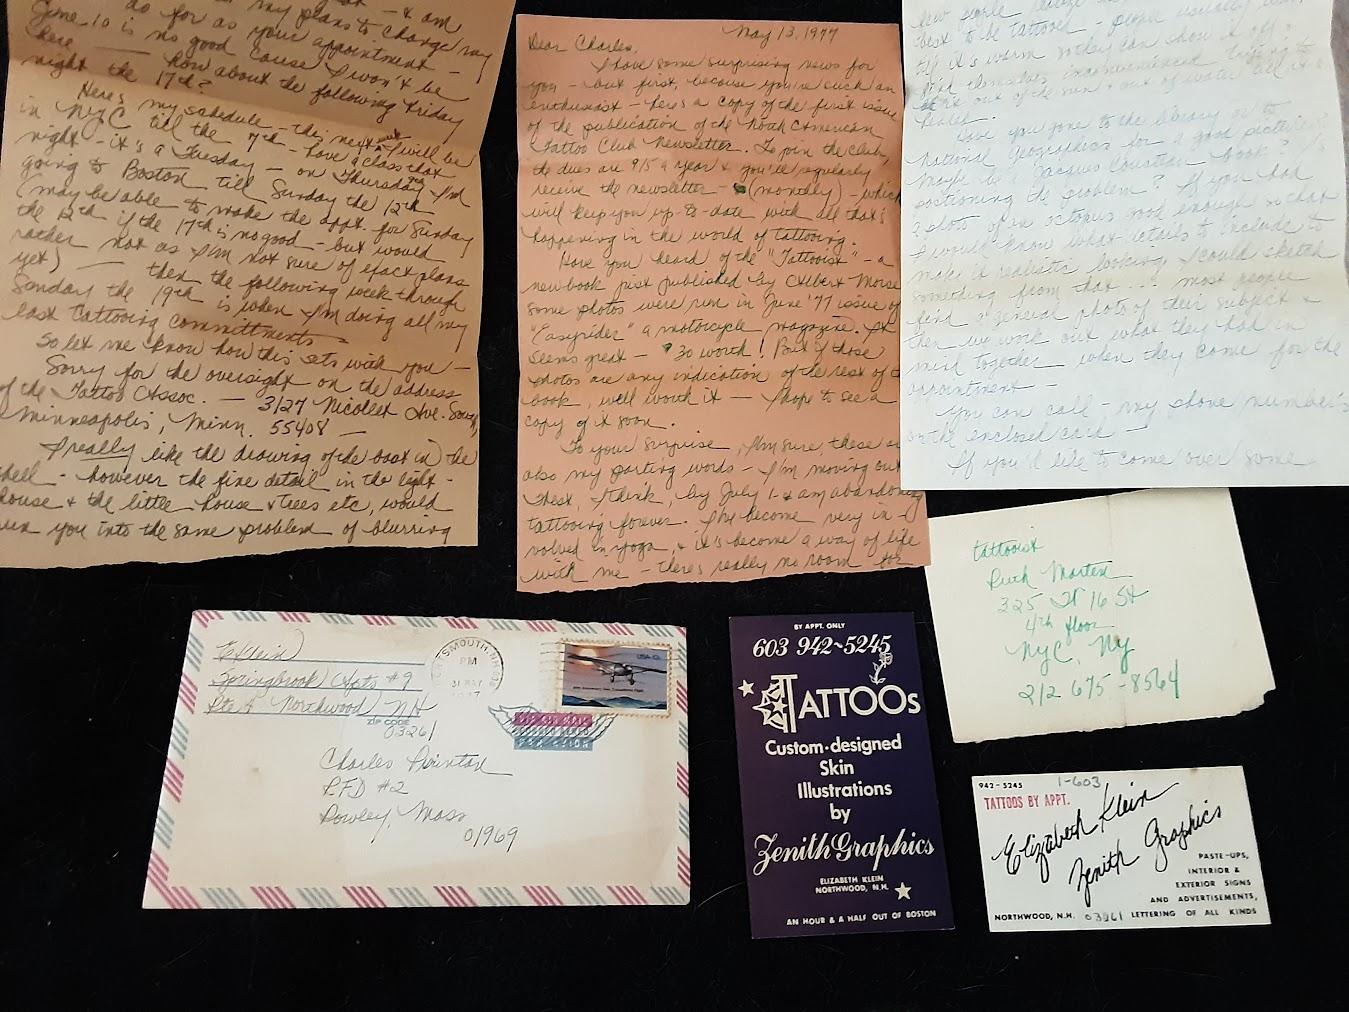 do for as my plans to change my
June 10 is no good 'cause I won't be
here — how about the following Friday
night the 17th?
Here's my schedule - the next week I will be
in NYC till the 7th - have a class that
night - it's a Tuesday - on Thursday I'm
going to Boston till Sunday the 12th
(may be able to make the appt. for Sunday
the 12th if the 17th is no good - but would
rather not as I'm not sure of exact plans
yet) — then the following week through
Sunday the 19th is when I'm doing all my
last tattooing commitments -
So let me know how this sets with you -
Sorry for the oversight on the address
of the Tattoo Assoc. — 3127 Nicollet Ave. South,
Minneapolis, Minn. 55408 —
I really like the drawing of the boat in the
shell - however the fine detail in the light-
house & the little house & trees etc, would
run you into the same problem of blurring
May 13, 1977
Dear Charles,
I have some surprising news for
you - but first, because you're such an
enthusiast - here's a copy of the first issue
of the publication of the North American
Tattoo Club Newsletter. To join the club,
the dues are $15 a year & you'll regularly
receive the newsletter - (monthly) - which
will keep you up-to-date with all that's
happening in the world of tattooing.
Have you heard of the "Tattooist" - a
new book just published by Albert Morse
some photos were run in June '77 issue of
"Easyrider" a motorcycle magazine. It
seems great - $30 worth! But if those
photos are any indication of the rest of the
book, well worth it - I hope to see a
copy of it soon.
To your surprise, I'm sure, these are
also my parting words - I'm moving out
West, I think, by July 1 & am abandoning
tattooing forever. I've become very in-
volved in yoga, & it's become a way of life
with me - there's really no room for
best to be tattooed - people usually wait
till it's warm so they can show it off &
find themselves inconvenienced trying to
keep it out of the sun & out of water till it's
healed.
Have you gone to the library or to
National Geographics for a good picture?
Maybe by a Jacques Cousteau book? Is
positioning the problem? If you had
a photo of an octopus good enough so that
I would know what details to include to
make it realistic looking, I could sketch
something from that ... most people
find a general photo of their subject &
then we work out what they had in
mind together when they come for the
appointment -
You can call - my phone number's
on the enclosed card -
If you'd like to come over some
tattooist
Ruth Marten
325 W 16 St
4th floor
NYC, NY
212 675-8564
E Klein
Springbrook Apts #9
Rte 4 Northwood NH
ZIP CODE
03261
PORTSMOUTH, NH
PM
31 MAY
1977
USA 13c
50th Anniversary Solo Transatlantic Flight
VIA AIR MAIL
PAR AVION
Charles
RFD #2
Rowley, Mass
01969
BY APPT. ONLY
603 942~5245
TATTOOS
Custom-designed
Skin
Illustrations
by
Zenith Graphics
ELIZABETH KLEIN
NORTHWOOD, N.H.
AN HOUR & A HALF OUT OF BOSTON
942-5245 1-603
TATTOOS BY APPT.
Elizabeth Klein
Zenith Graphics
PASTE-UPS,
INTERIOR &
EXTERIOR SIGNS
AND ADVERTISEMENTS,
NORTHWOOD, N.H. 03261 LETTERING OF ALL KINDS